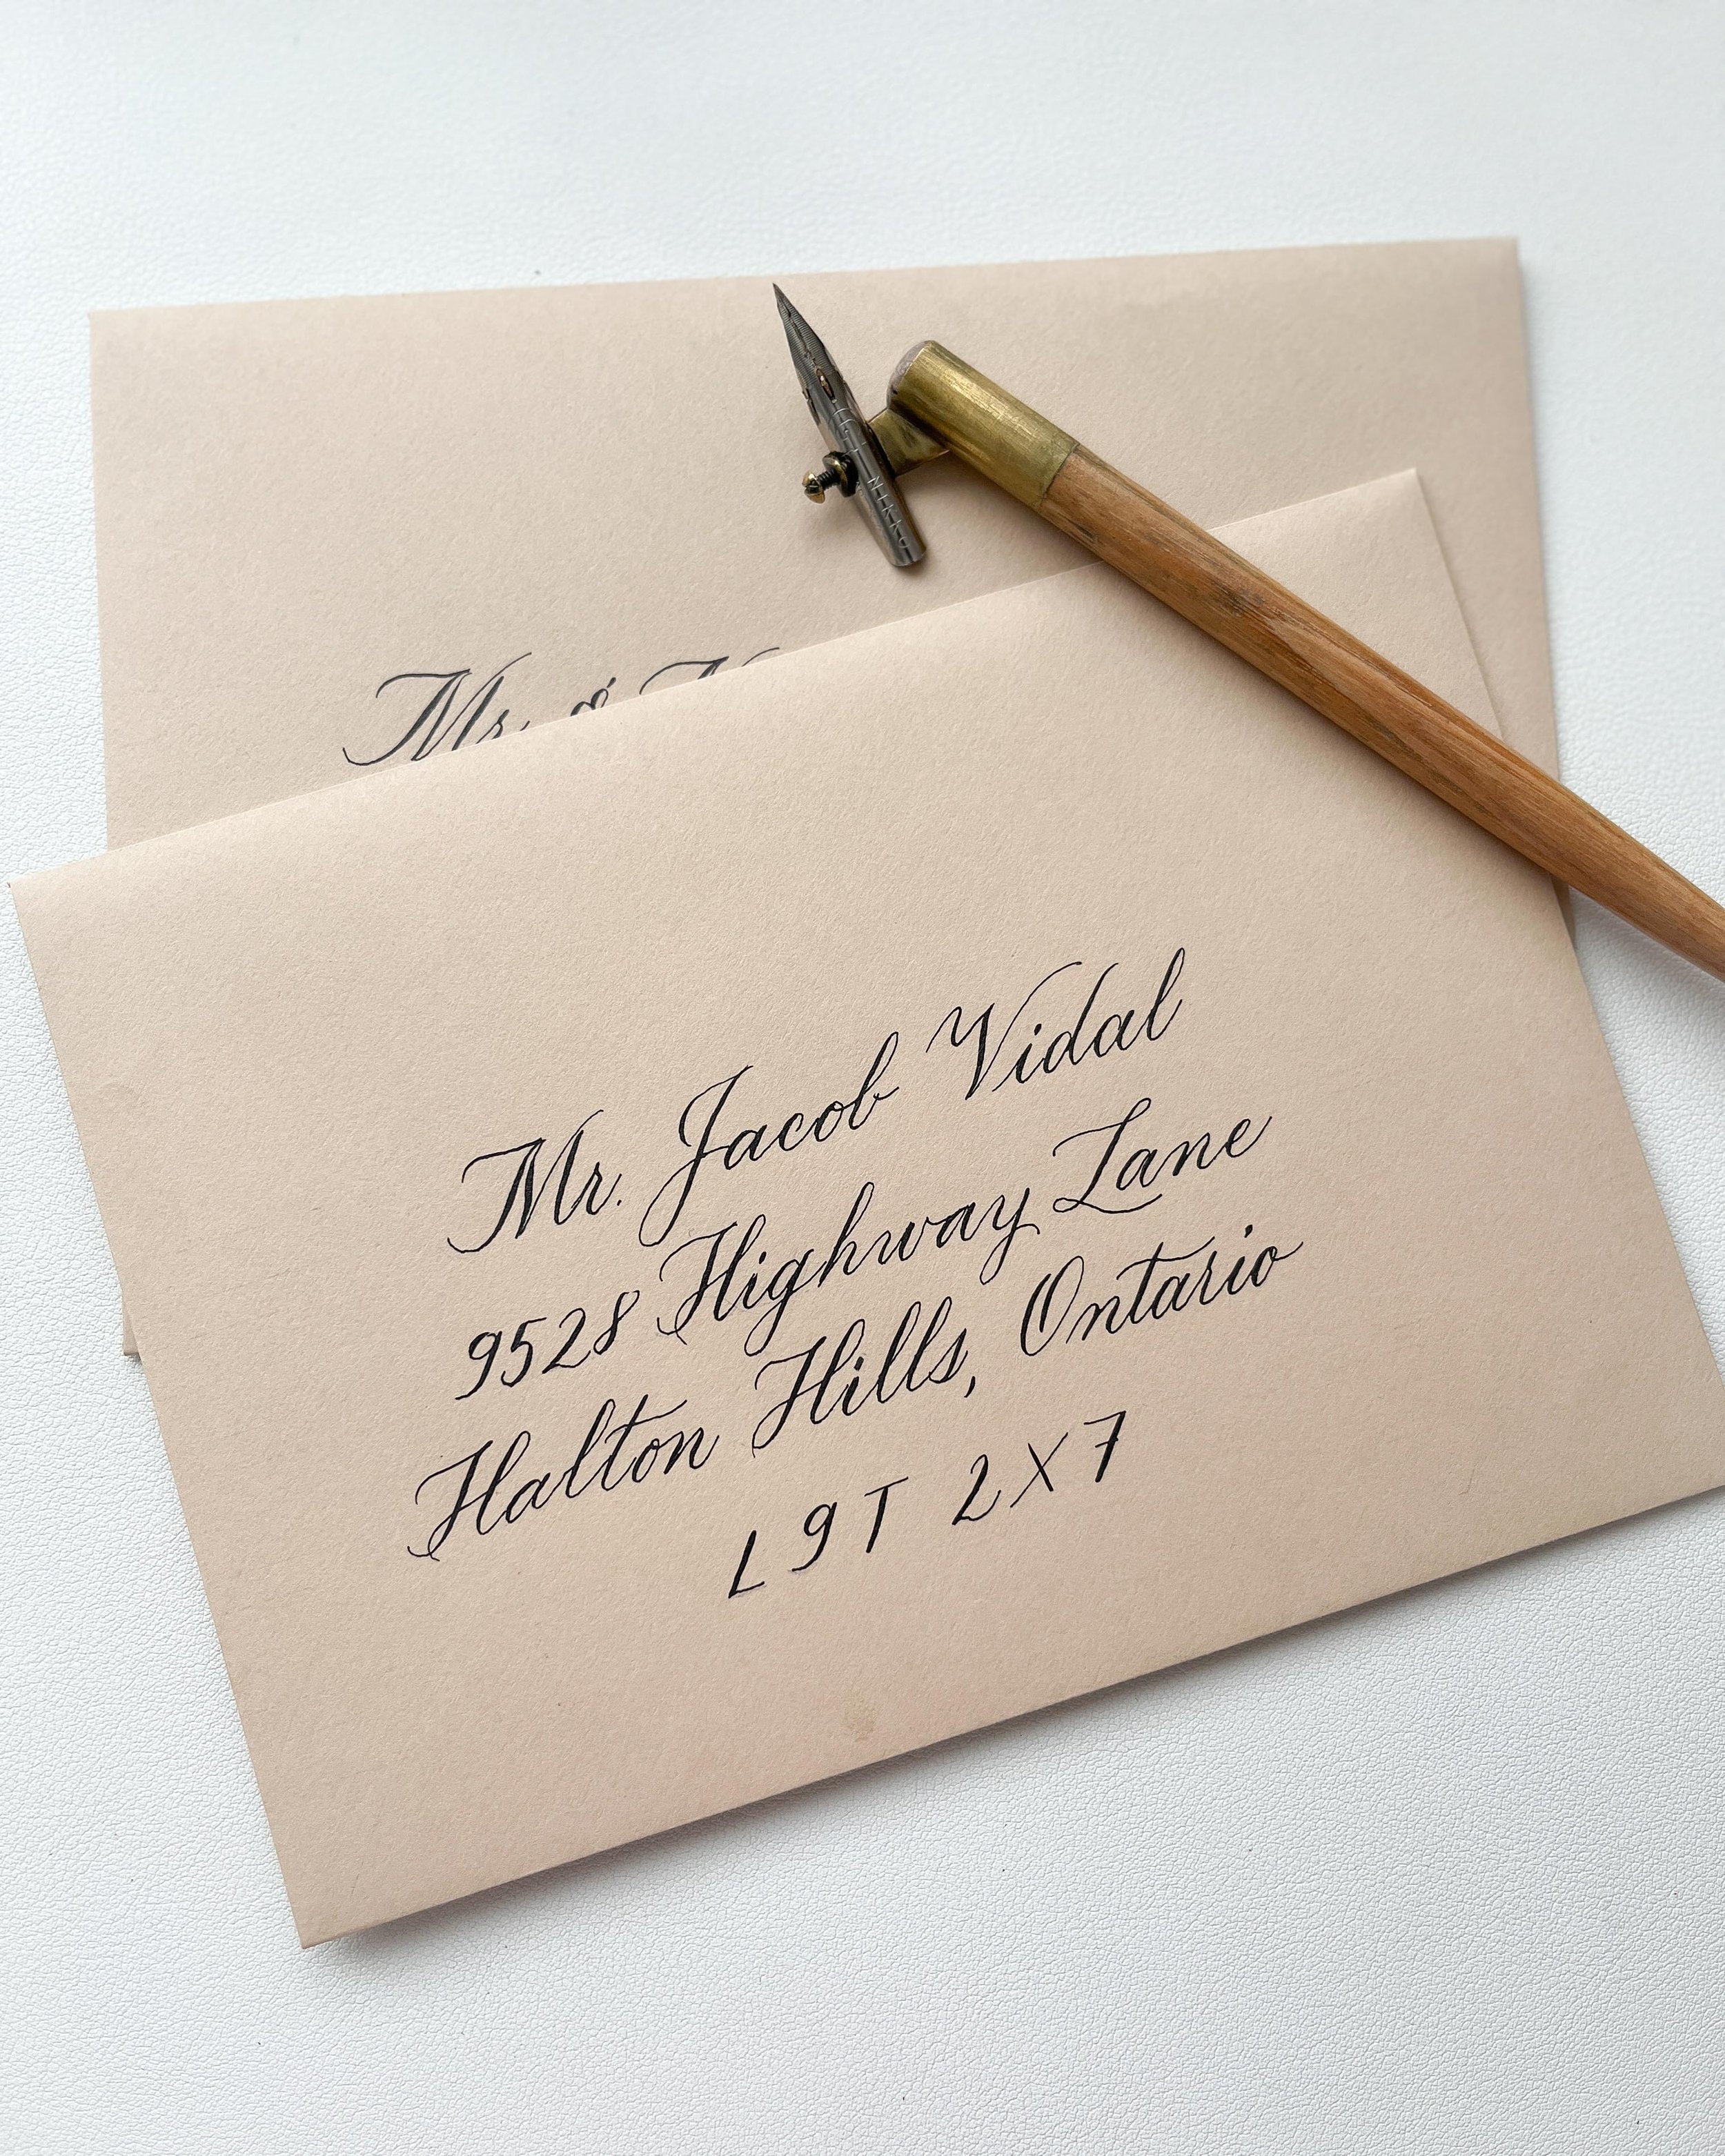 Mr. &
Mr. Jacob Vidal
9528 Highway Lane
Halton Hills, Ontario
L9T 2X7